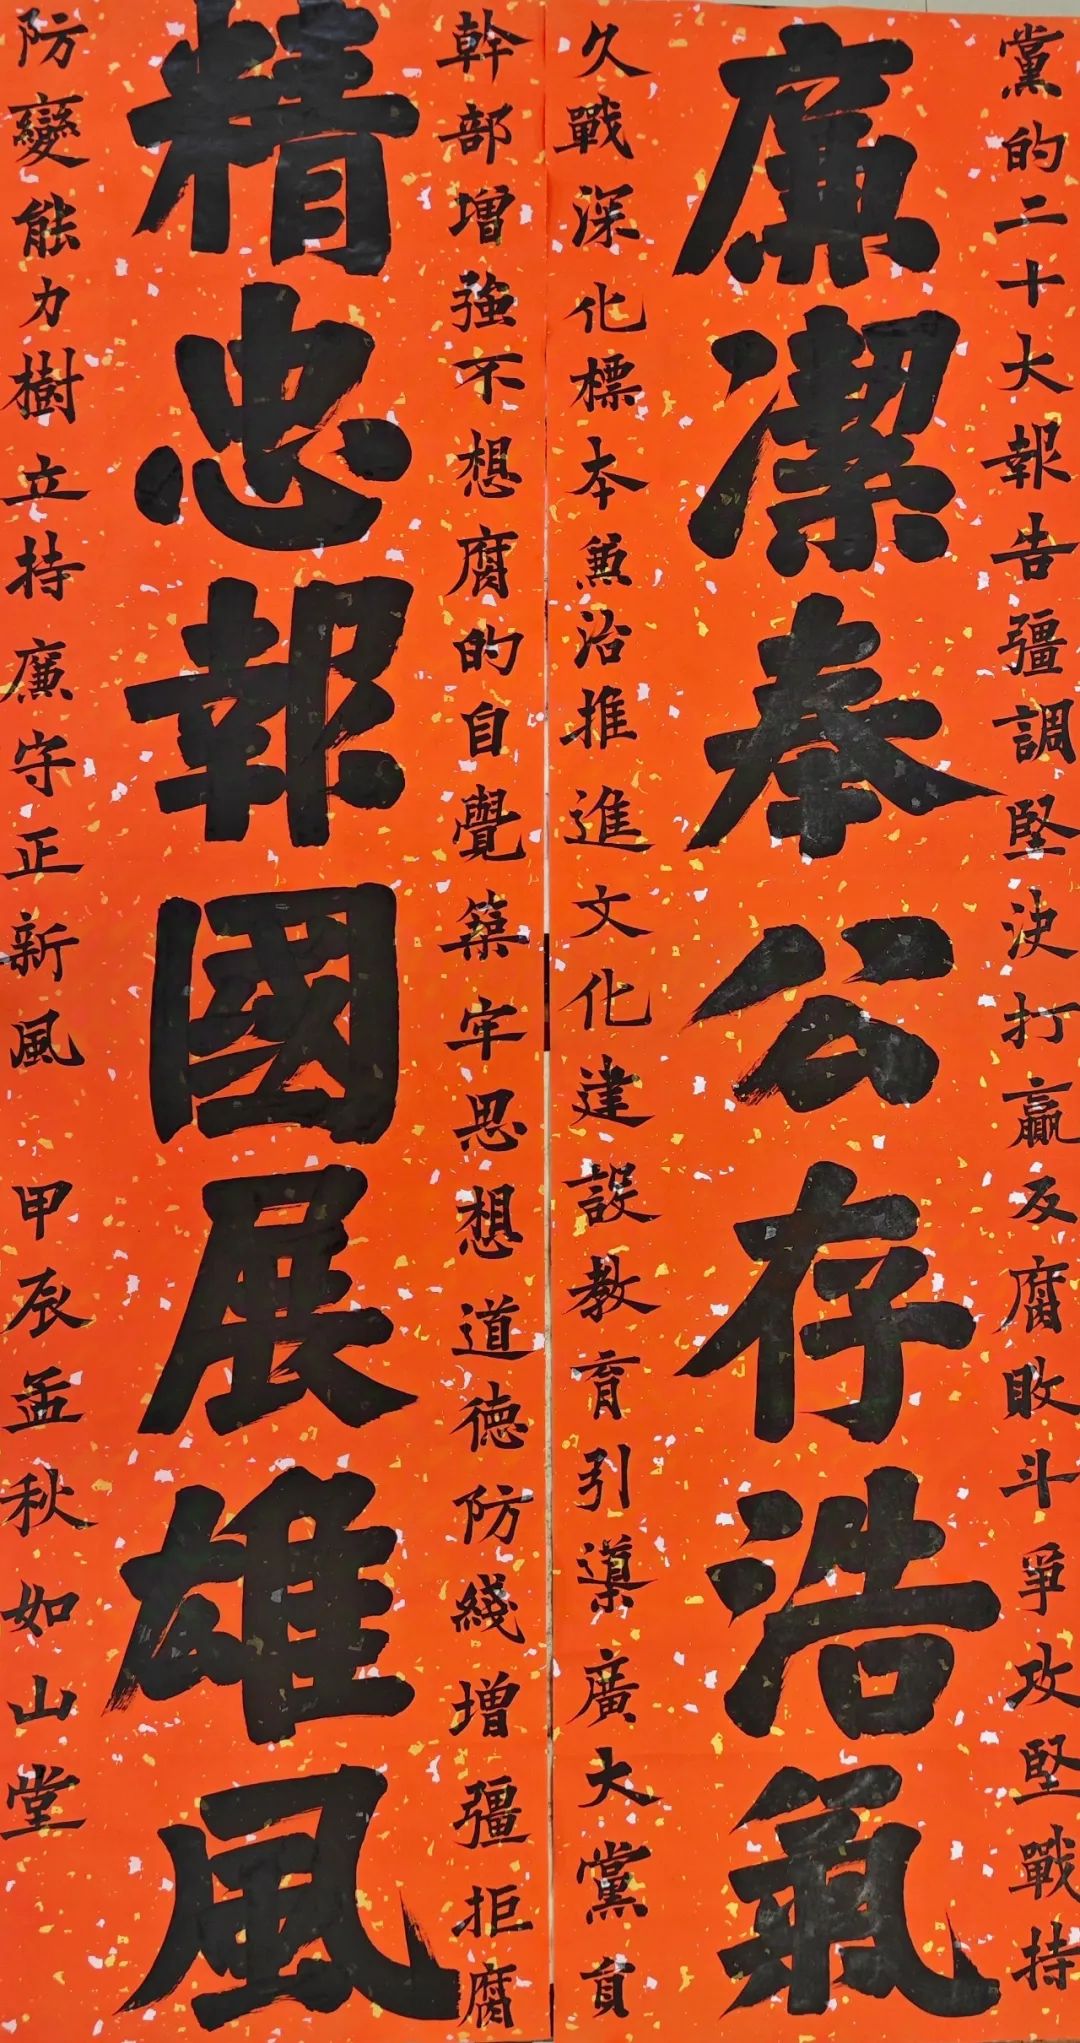 黨的二十大報告彊調堅決打贏反腐敗斗爭攻堅戰持
廉潔奉公存浩氣
久戰深化標本兼治推進文化建設教育引導廣大黨員
幹部增強不想腐的自覺築牢思想道德防綫增彊拒腐
精忠報國展雄風
防變能力樹立持廉守正新風 甲辰孟秋如山堂